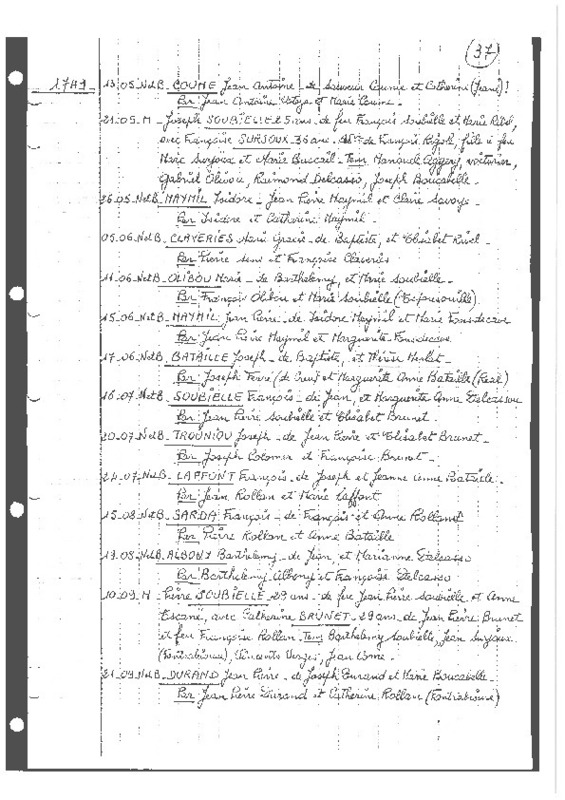 37
1749 13.05. NetB. COUME Jean Antoine - de Sauveur Coume et Catherine (Jeanne)!
Par Jean Antoine et Marie Coume -
21.05. M - Joseph SOUBIELLE 25 ans - de feu François Soubielle et Marie
avec Françoise SURJOUX 36 ans de François Rigoli, fille à feu
Marc Surjoux et Marie Buscail - Tem Manaude Aggery, voiturier,
Gabriel Olivou, Raimond Delcasso, Joseph Boucabelle -
26.05 NetB. MAYMIL Isidore - Jean Pierre Maymil et Claire
Par Isidore et Catherine Maymil -
05.06. NetB. CLAVERIES Marie Gracie - de Baptiste, et Elisabet
Par Pierre et Françoise Claveries
11.06. NetB. OLIBOU Marie - de Barthelemy, et Marie Soubielle -
Par François Olibou et Marie Soubielle
15.06. NetB. MAYMIL Jean Pierre - de Isidore Maymil et Marie
Par Jean Pierre Maymil et Marguerite
17.06. NetB. BATAILLE Joseph - de Baptiste, et Thérèse
Par Joseph Ferre et Marguerite Anne Bataille (Real)
16.07. NetB. SOUBIELLE François - de Jean, et Marguerite Anne Delcassou
Par Jean Pierre Soubielle et Elisabet Brunet -
20.07. NetB. TROUNIOU Joseph - de Jean Pierre et Elisabet Brunet -
Par Joseph Colomer et Françoise Brunet -
24.07. NetB. LAFFONT François - de Joseph et Jeanne Anne Bataille -
Par Jean Rollan et Marie Laffont
15.08. NetB. SARDA François - de François et Anne Rollanet
Par Pierre Rollan et Anne Bataille
19.08. NetB. ALBONY Barthelemy - de Jean, et Marianne Delcasso
Par Barthelemy Albony et Françoise Delcasso
10.09. M - Pierre SOUBIELLE 29 ans - de feu Jean Pierre Soubielle et Anne
Escané, avec Catherine BRUNET - 29 ans - de Jean Pierre Brunet
et feu Françoise Rollan. Tem Barthelemy Soubielle, Jean Surjoux
(Fontrabiouse), Vincents Verges, Jean Come -
21.09. NetB. DURAND Jean Pierre - de Joseph Durand et Marie Boucabelle -
Par Jean Pierre Durand et Catherine Rollan (Fontrabiouse)